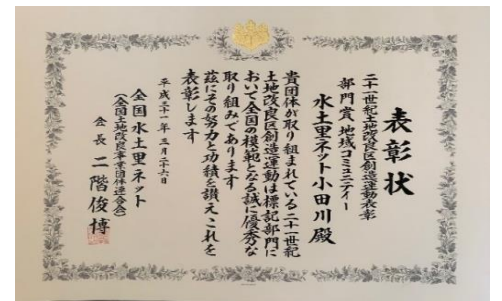 表彰状
二十一世紀土地改良区創造運動表彰
部門賞 地域コミュニティー
水土里ネット小田川殿
貴団体が取り組まれている二十一世紀
土地改良区創造運動は標記部門に
おいて全国の模範となる誠に優秀な
取り組みであります
茲にその努力と功績を讃えこれを
表彰します
平成三十一年三月二十六日
全国水土里ネット
(全国土地改良事業団体連合会)
会長 二階俊博